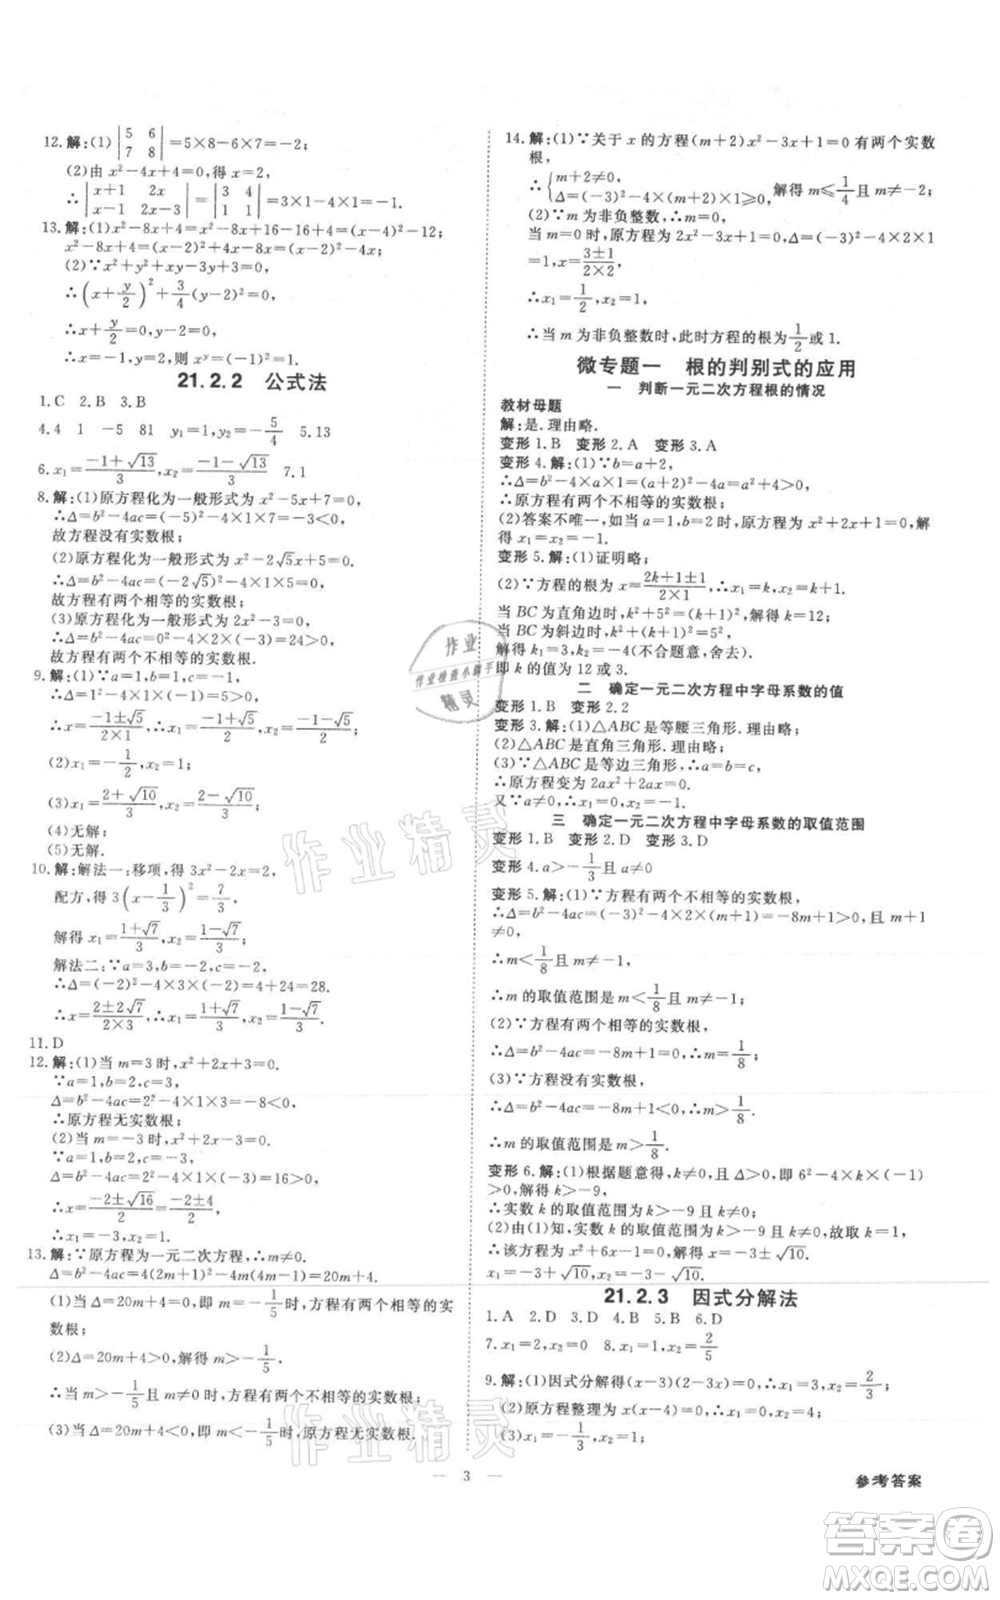 12.解:(1) |5 6; 7 8|=5×8-6×7=-2;
(2)由 x²-4x+4=0,得 x=2,
∴|x+1 2x; x-1 2x-3|=|3 4; 1 1|=3×1-4×1=-1.
13.解:(1)x²-8x+4=x²-8x+16-16+4=(x-4)²-12;
x²-8x+4=(x-2)²+4x-8x=(x-2)²-4x;
(2)∵x²+y²+xy-3y+3=0,
∴(x+y/2)²+3/4(y-2)²=0,
∴x+y/2=0,y-2=0,
∴x=-1,y=2,则 xʸ=(-1)²=1.
21.2.2 公式法
1.C 2.B 3.B
4.4 1 -5 81 y₁=1,y₂=-5/4 5.13
6.x₁=(-1+√13)/3,x₂=(-1-√13)/3 7.1
8.解:(1)原方程化为一般形式为 x²-5x+7=0,
∴Δ=b²-4ac=(-5)²-4×1×7=-3<0,
故方程没有实数根;
(2)原方程化为一般形式为 x²-2√5x+5=0,
∴Δ=b²-4ac=(-2√5)²-4×1×5=0,
故方程有两个相等的实数根;
∴Δ=b²-4ac=0²-4×2×(-3)=24>0,
故方程有两个不相等的实数根.
9.解:(1)∵a=1,b=1,c=-1,
∴Δ=1²-4×1×(-1)=5>0,
∴x=(-1±√5)/(2×1),∴x₁=(-1+√5)/2,x₂=(-1-√5)/2;
(2)x₁=-1/2,x₂=1;
(3)x₁=(2+√10)/3,x₂=(2-√10)/3;
(4)无解;
(5)无解.
10.解:解法一:移项,得 3x²-2x=2,
配方,得 3(x-1/3)²=7/3,
解得 x₁=(1+√7)/3,x₂=(1-√7)/3.
解法二:∵a=3,b=-2,c=-2,
∴Δ=(-2)²-4×3×(-2)=4+24=28.
∴x=(2±2√7)/(2×3),∴x₁=(1+√7)/3,x₂=(1-√7)/3.
11.D
12.解:(1)当 m=3时,x²+2x+3=0.
∵a=1,b=2,c=3,
Δ=b²-4ac=2²-4×1×3=-8<0,
∴原方程无实数根;
(2)当 m=-3 时,x²+2x-3=0.
∵a=1,b=2,c=-3,
Δ=b²-4ac=2²-4×1×(-3)=16>0,
∴x=(-2±√16)/2=(-2±4)/2,
∴x₁=-3,x₂=1.
13.解:∵原方程为一元二次方程,∴m≠0.
Δ=b²-4ac=4(2m+1)²-4m(4m-1)=20m+4.
(1)当 Δ=20m+4=0,即 m=-1/5时,方程有两个相等的实数根;
(2)Δ=20m+4>0,解得 m>-1/5;
∴当 m>-1/5 且 m≠0时,方程有两个不相等的实数根;
(3)当 Δ=20m+4<0,即 m<-1/5时,原方程无实数根.
14.解:(1)∵关于 x 的方程(m+2)x²-3x+1=0 有两个实数
根,
∴{m+2≠0, Δ=(-3)²-4×(m+2)×1≥0, 解得 m≤1/4且 m≠-2;
(2)∵m 为非负整数,∴m=0.
当 m=0时,原方程为 2x²-3x+1=0,Δ=(-3)²-4×2×1
=1,x=(3±1)/(2×2),
∴x₁=1/2,x₂=1.
∴当 m 为非负整数时,此时方程的根为1/2或1.
微专题一 根的判别式的应用
一 判断一元二次方程根的情况
教材母题
解:是.理由略.
变形 1.B 变形 2.A 变形 3.A
变形 4.解:(1)∵b=a+2,
∴Δ=b²-4×a×1=(a+2)²-4a=a²+4>0,
∴原方程有两个不相等的实数根;
(2)答案不唯一,如当 a=1,b=2 时,原方程为 x²+2x+1=0,解
得 x₁=x₂=-1.
变形 5.解:(1)证明略;
(2)∵方程的根为 x=(2k+1±1)/(2×1),∴x₁=k,x₂=k+1.
当 BC 为直角边时,k²+5²=(k+1)²,解得 k=12;
当 BC 为斜边时,k²+(k+1)²=5²,
解得 k₁=3,k₂=-4(不合题意,舍去).
即 k 的值为 12 或 3.
二 确定一元二次方程中字母系数的值
变形 1.B 变形 2.2
变形 3.解:(1)△ABC 是等腰三角形.理由略;
(2)△ABC 是直角三角形.理由略;
(3)∵△ABC 是等边三角形,∴a=b=c,
∴原方程变为 2ax²+2ax=0.
又∵a≠0,∴x₁=0,x₂=-1.
三 确定一元二次方程中字母系数的取值范围
变形 1.B 变形 2.D 变形 3.D
变形 4.a>-1/3且 a≠0
变形 5.解:(1)∵方程有两个不相等的实数根,
∴Δ=b²-4ac=(-3)²-4×2×(m+1)=-8m+1>0,且 m+1
≠0,
∴m<1/8且 m≠-1,
∴m 的取值范围是 m<1/8且 m≠-1;
(2)∵方程有两个相等的实数根,
∴Δ=b²-4ac=-8m+1=0,∴m=1/8;
(3)∵方程没有实数根,
∴Δ=b²-4ac=-8m+1<0,∴m>1/8,
∴m 的取值范围是 m>1/8.
变形 6.解:(1)根据题意得,k≠0,且 Δ>0,即 6²-4×k×(-1)
>0,解得 k>-9,
∴实数 k 的取值范围为 k>-9 且 k≠0;
(2)由(1)知,实数 k 的取值范围为 k>-9 且 k≠0,故取 k=1,
∴该方程为 x²+6x-1=0,解得 x=-3±√10,
x₁=-3+√10,x₂=-3-√10.
21.2.3 因式分解法
1.A 2.D 3.D 4.B 5.B 6.D
7.x₁=-2,x₂=0 8.x₁=1,x₂=2/5
9.解:(1)因式分解得(x-3)(3x-2)=0,x₁=3,x₂=2/3;
(2)原方程整理为 x(x-4)=0,x₁=0,x₂=4;
(3)x₁=-1/2,x₂=1;
— 3 —
参考答案
作业精灵
作业精灵
作业
作业检查小助手
精灵
答案圈
MXQE.COM